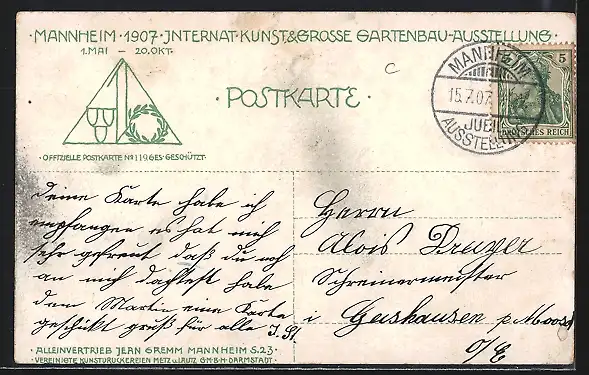 MANNHEIM · 1907 · INTERNAT · KUNST & GROSSE GARTENBAU-AUSSTELLUNG ·
1. MAI – 20. OKT.
· POSTKARTE ·
· OFFIZIELLE POSTKARTE No 119 GES. GESCHÜTZT ·
MANNHEIM
15.7.07
JUBIL.
AUSSTELLUNG
5
DEUTSCHES REICH
Deine Karte habe ich
empfangen es hat mich
sehr gefreut daß du noch
an mich dachtest habe
dem Martin eine Karte
geschickt gruß für alle J. St.
Herrn
Alois
Schreinermeister
i Geishausen p. Moosch
O/E
· ALLEINVERTRIEB JEAN GREMM MANNHEIM S.2.3 ·
· VEREINIGTE KUNSTDRUCKEREIEN METZ u. LAUTZ G·M·B·H· DARMSTADT ·